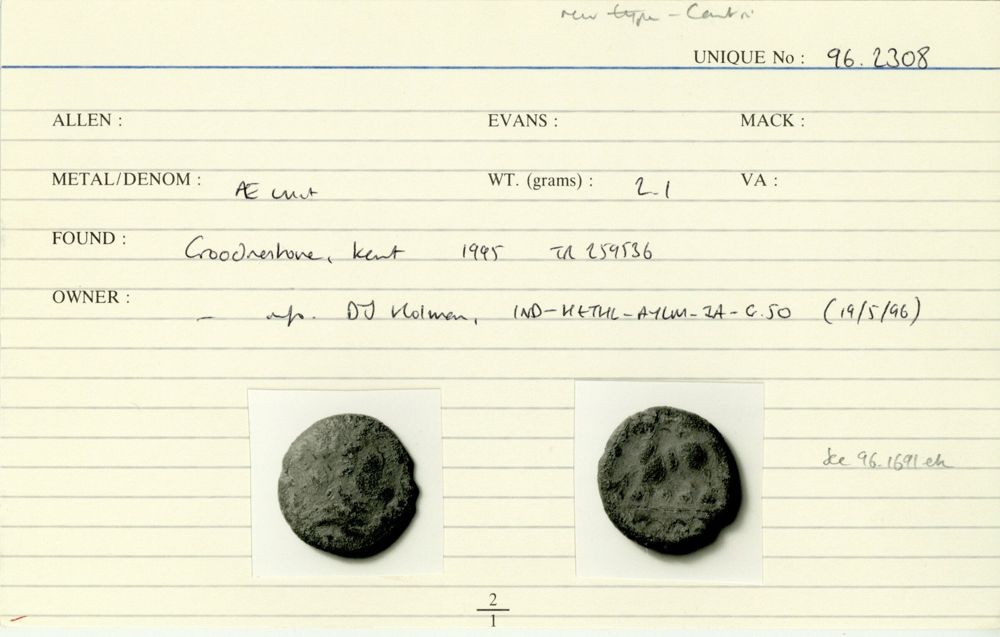 new type - Canti
UNIQUE No : 96.2308
ALLEN : EVANS : MACK :
METAL/DENOM : Æ unit WT. (grams) : 2.1 VA :
FOUND : Goodnestone, Kent 1995 TR 259536
OWNER : – info. DJ Holman, IND-HETHL-AYLM-IA-C.50 (19/5/96)
See 96.1691 etc
2
1